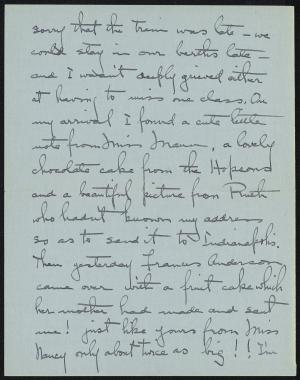 sorry that the train was late - we
could stay in our berths late -
and I wasn't deeply grieved either
at having to miss one class. On
my arrival I found a cute little
note from Miss , a lovely
chocolate cake from the Hopsons
and a beautiful picture from Ruth
who hadn't known my address
so as to send it to Indianapolis.
Then yesterday Frances Anderson
came over with a fruit cake which
her mother had made and sent
me! just like yours from Miss
Nancy only about twice as big!! I'm